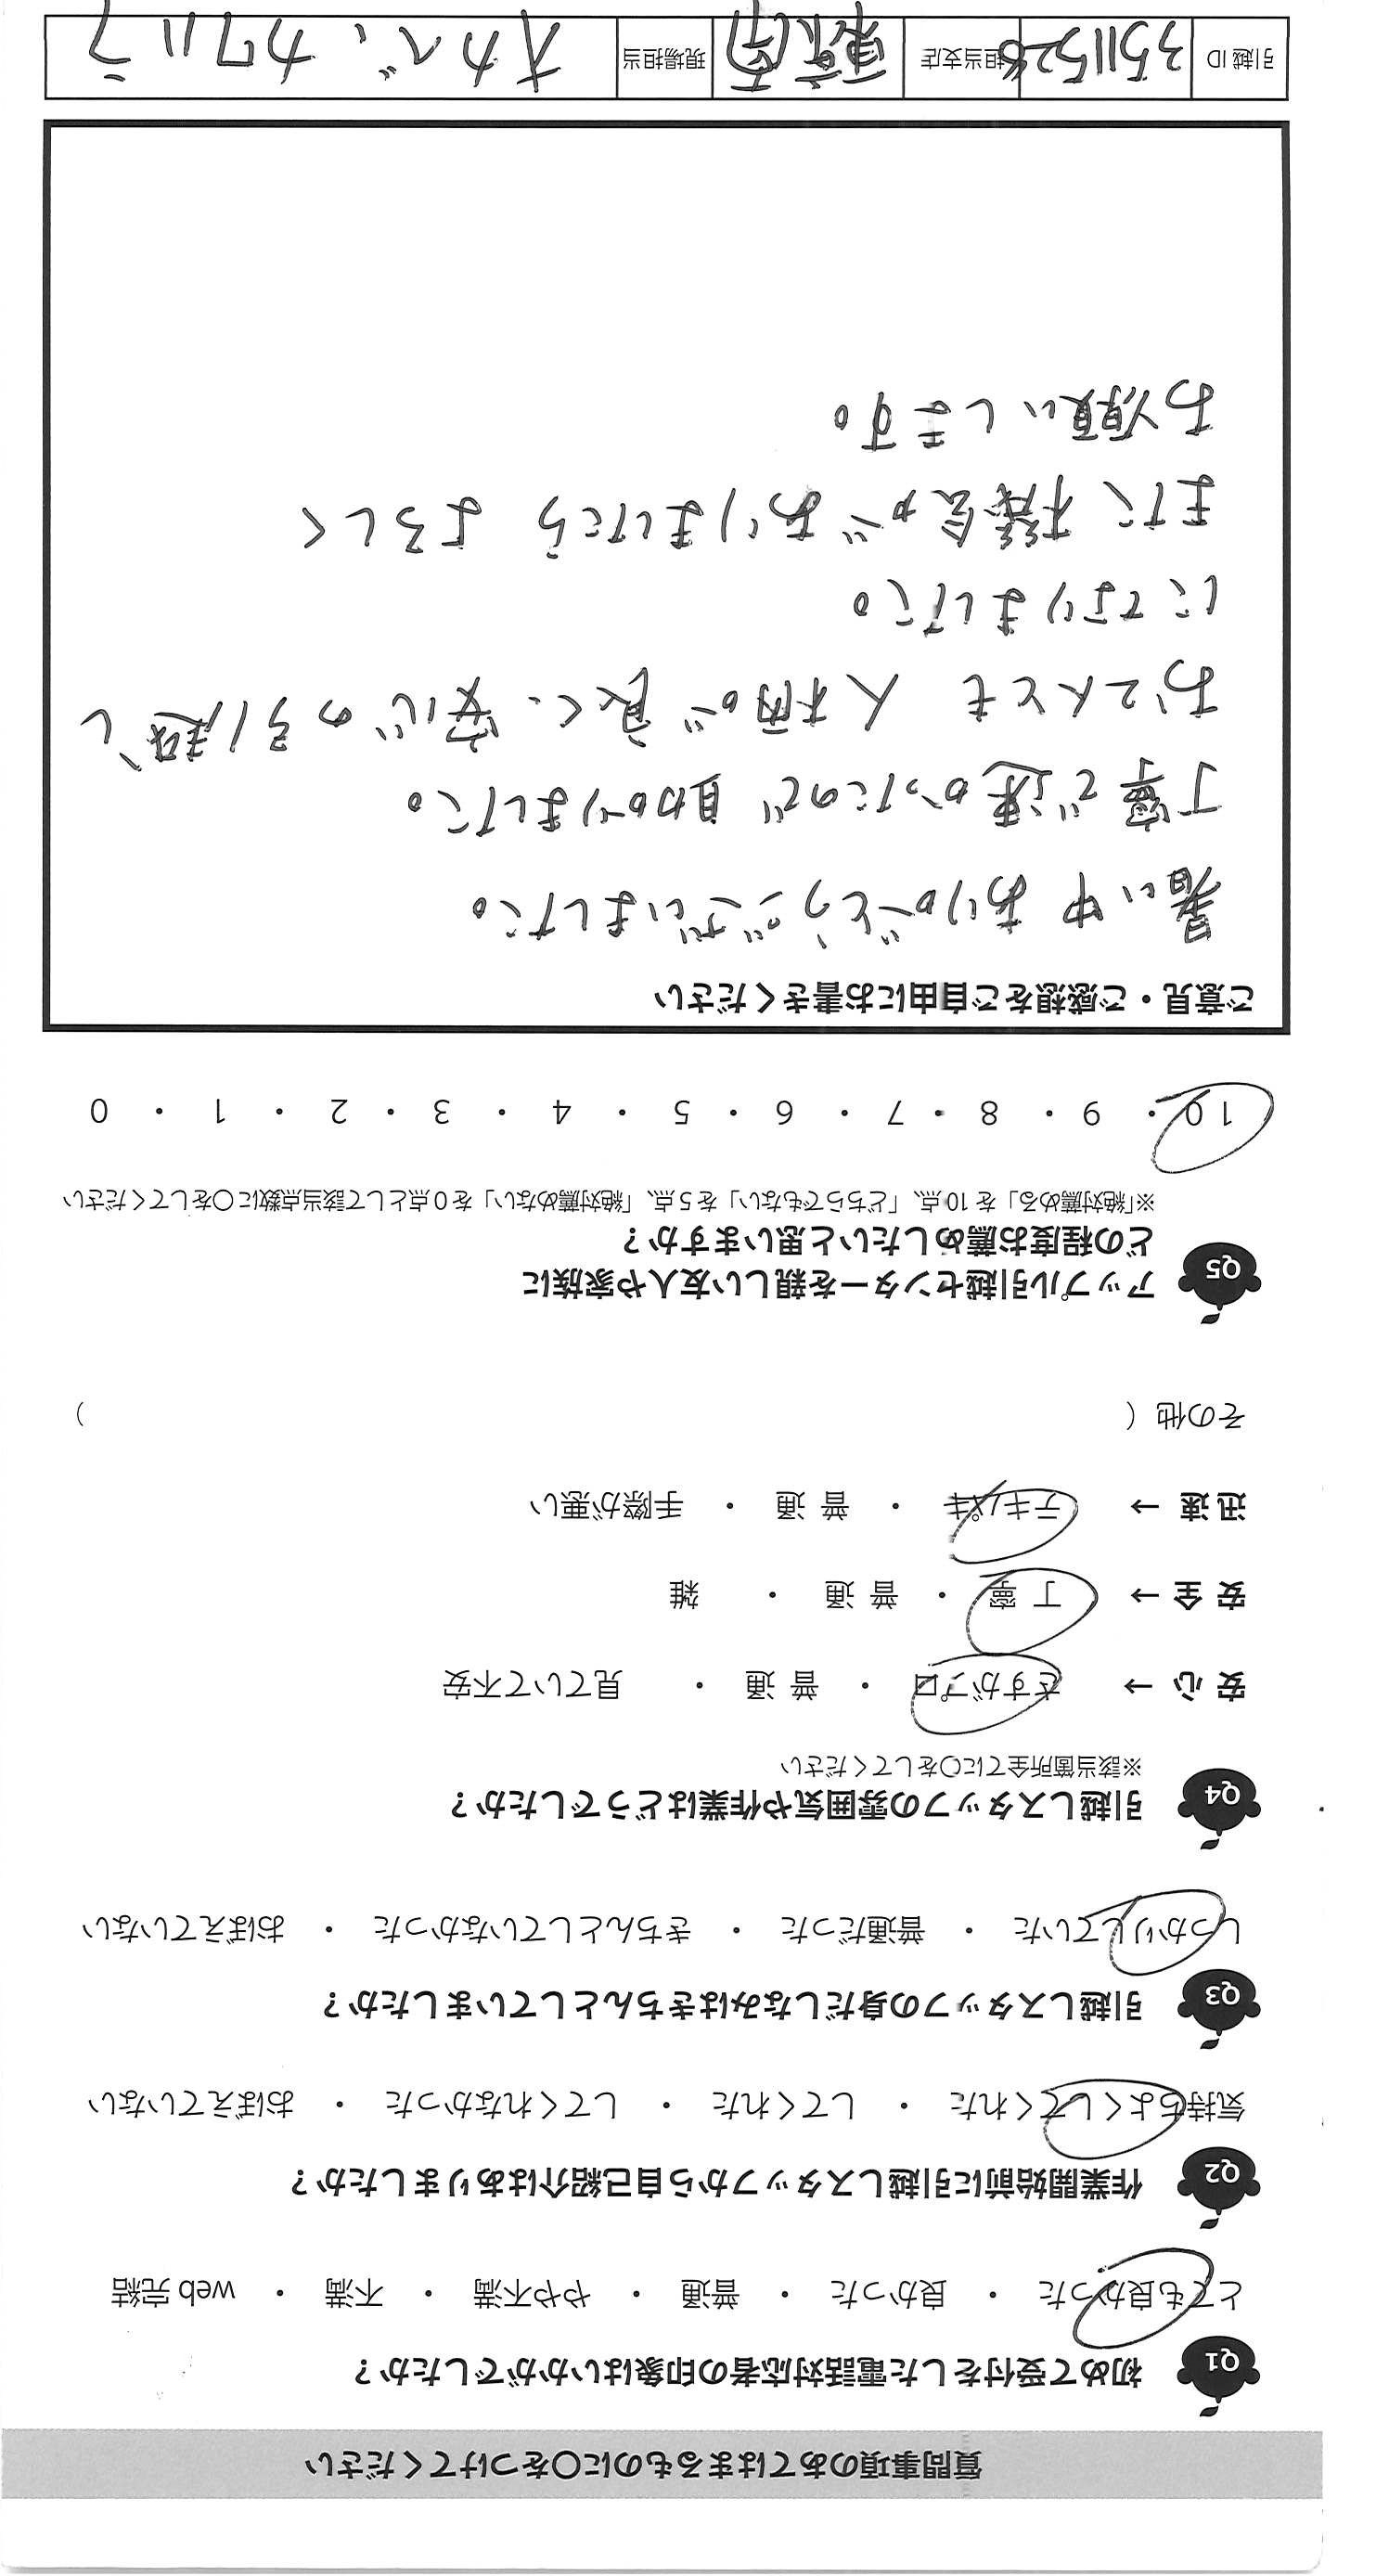 質問事項のあてはまるものに○をつけてください
Q1 初めて受付をした電話対応者の印象はいかがでしたか？
とても良かった ・ 良かった ・ 普通 ・ やや不満 ・ 不満 ・ web 完結
Q2 作業開始前に引越しスタッフから自己紹介はありましたか？
気持ちよくしてくれた ・ してくれた ・ してくれなかった ・ おぼえていない
Q3 引越しスタッフの身だしなみはきちんとしていましたか？
しっかりしていた ・ 普通だった ・ きちんとしていなかった ・ おぼえていない
Q4 引越しスタッフの雰囲気や作業はどうでしたか？
※該当箇所全てに○をしてください
安 心 → さすがプロ ・ 普 通 ・ 見ていて不安
安 全 → 丁 寧 ・ 普 通 ・ 雑
迅 速 → テキパキ ・ 普 通 ・ 手際が悪い
その他（ ）
Q5 アップル引越センターを親しい友人や家族に
どの程度お薦めしたいと思いますか？
※「絶対薦める」を 10 点、「どちらでもない」を 5 点、「絶対薦めない」を 0 点として該当点数に○をしてください
10 ・ 9 ・ 8 ・ 7 ・ 6 ・ 5 ・ 4 ・ 3 ・ 2 ・ 1 ・ 0
ご意見・ご感想をご自由にお書きください
暑い中 ありがとうございました。
丁寧で速かったので 助かりました。
お2人とも 人柄が良く、安心の引越し
になりました。
また機会がありましたら よろしく
お願いします。
引越 ID 3511526 担当支店 東京(南) 現場担当 オカベ、カワハラ